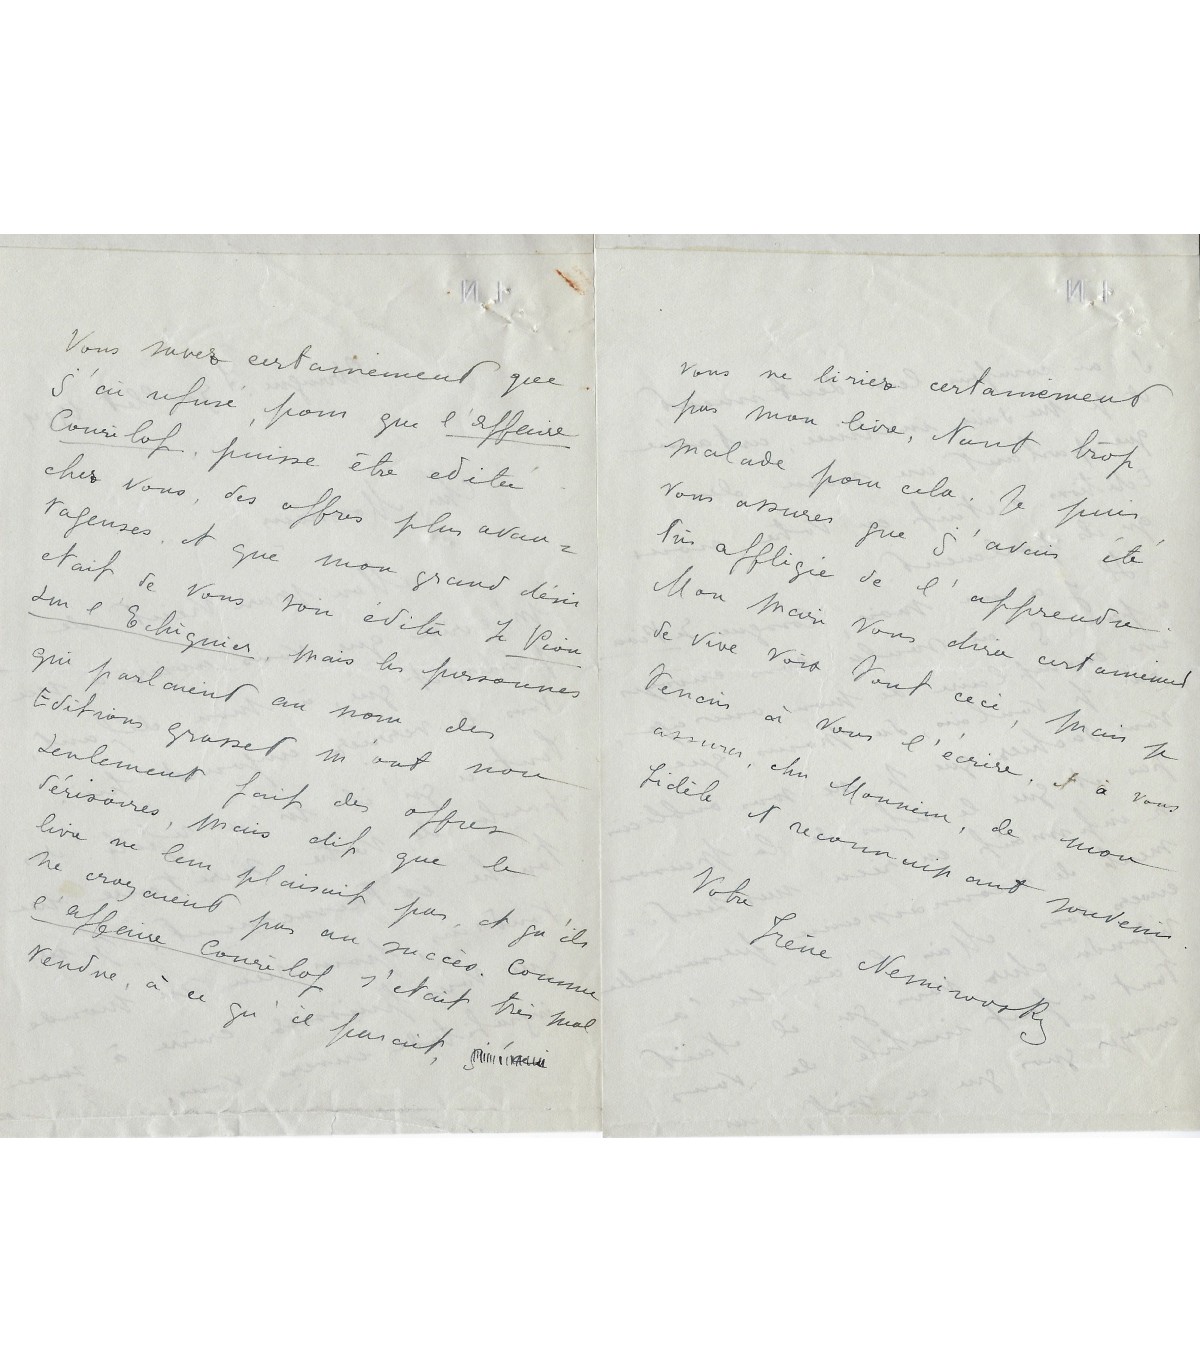 I.N
Vous savez certainement que
j'ai refusé, pour que l'affaire
Courilof, puisse être edité
chez vous, des offres plus avan=
tageuses, et que mon grand désir
etait de vous voir éditer Le Pion
sur l'Echiquier. Mais les personnes
qui parlaient au nom des
Editions Grasset m'ont non
seulement fait des offres
dérisoires, mais dit que le
livre ne leur plaisait pas, et qu'ils
ne croyaient pas au succès. Comme
l'affaire Courilof s'etait très mal
vendue, à ce qu'il parait,
I.N
vous ne liriez certainement
pas mon livre, étant trop
malade pour cela. Je puis
vous assurer que j'avais été
très affligée de l'apprendre.
Mon mari vous dira certainement
de vive voix tout ceci, mais je
tenais à vous l'écrire, et à vous
assurer, cher Monsieur, de mon
fidèle et reconnaissant souvenir.
Votre
Irène Nemirovsky